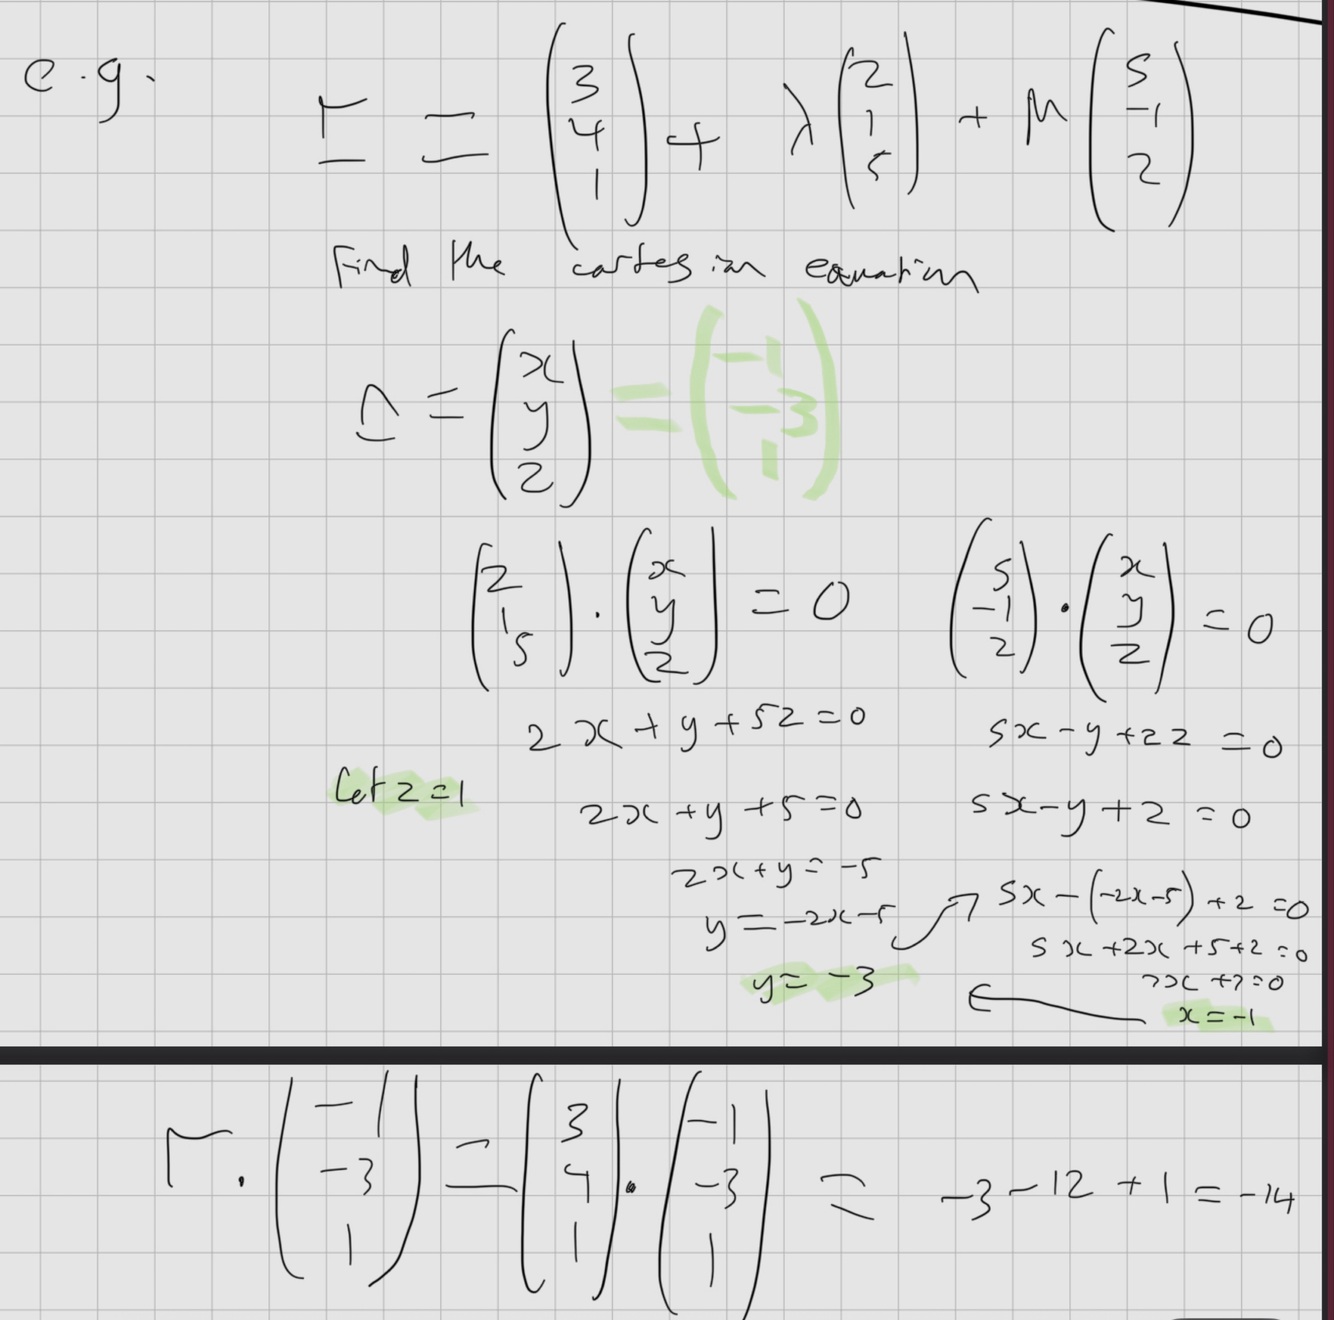 e.g. r = (3 4 1) + λ (2 1 5) + μ (5 -1 2)
Find the cartesian equation
n = (x y z) = (-1 -3 1)
(2 1 5) · (x y z) = 0 (5 -1 2) · (x y z) = 0
2x + y + 5z = 0 5x - y + 2z = 0
Let z = 1 2x + y + 5 = 0 5x - y + 2 = 0
2x + y = -5
y = -2x - 5 5x - (-2x - 5) + 2 = 0
5x + 2x + 5 + 2 = 0
y = -3 7x + 7 = 0
x = -1
r . (-1 -3 1) = (3 4 1) · (-1 -3 1) = -3 - 12 + 1 = -14